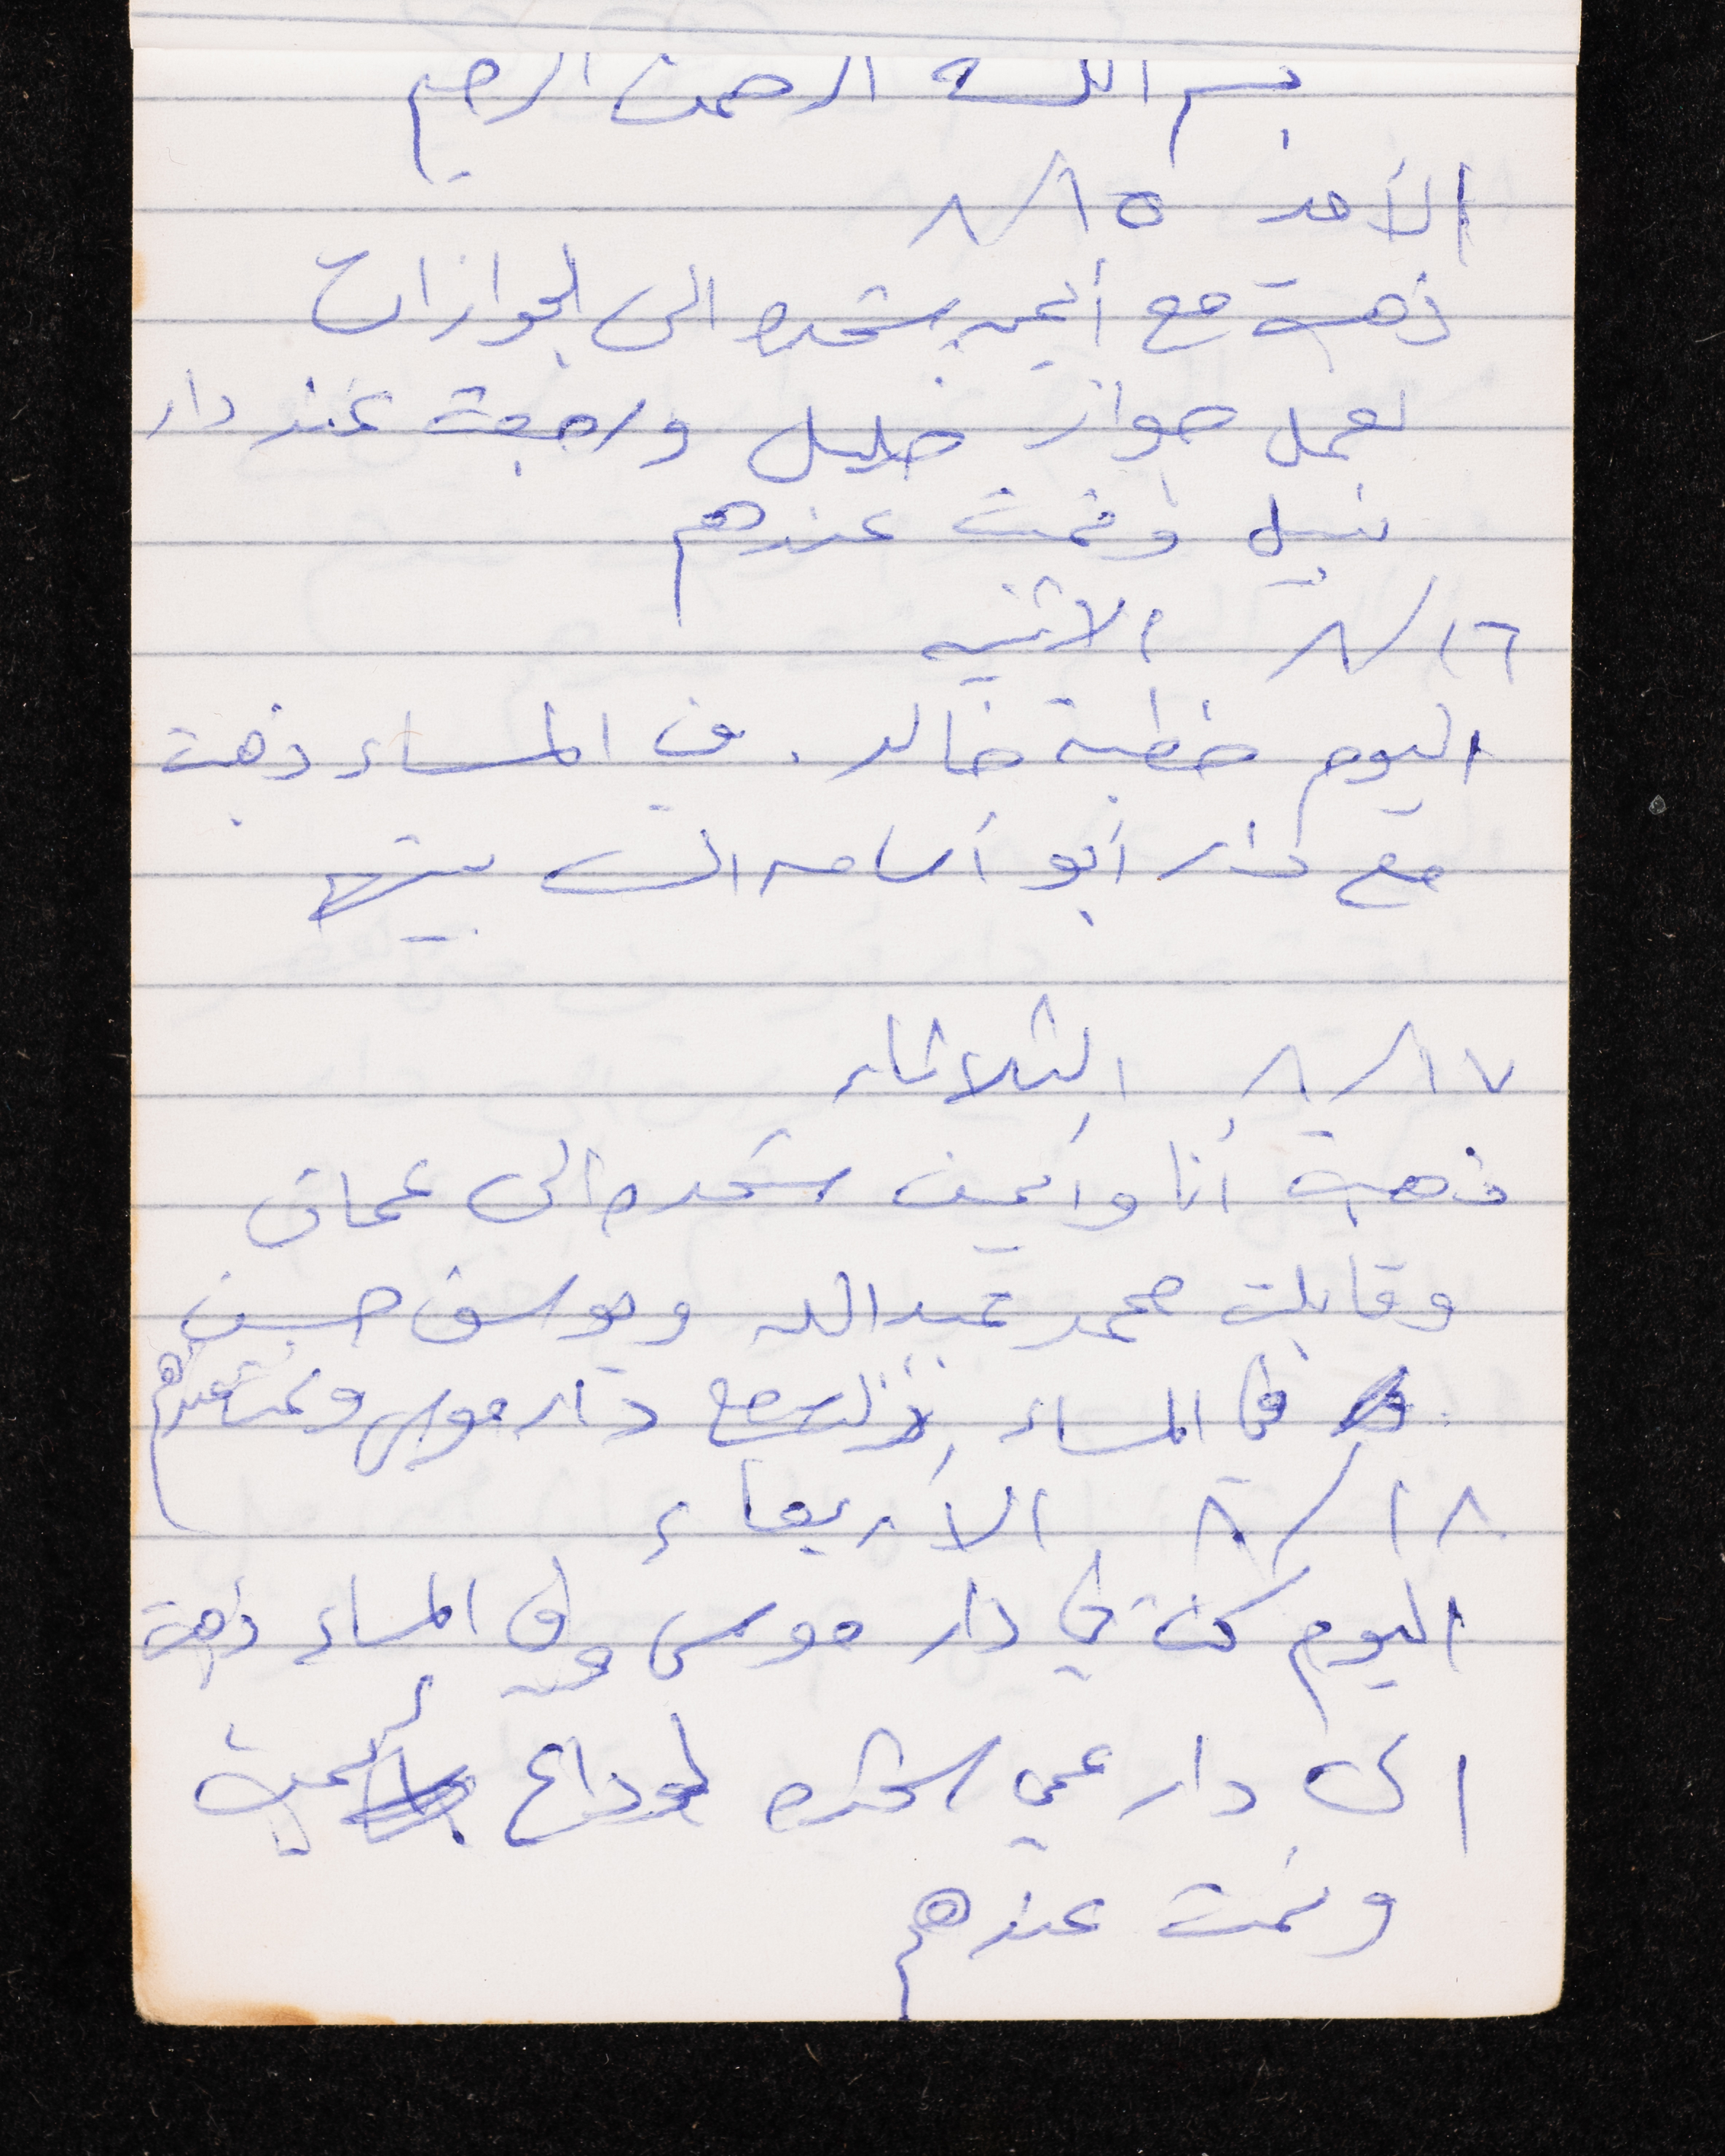 بسم الله الرحمن الرحيم
الأحد ١٥/٨
ذهبت مع أيمن شحده الى الجوازات
لعمل جواز خليل ورجعت عند دار
نبيل ونمت عندهم
١٦/٨ الاثنين
اليوم خطبة خالد. في المساء ذهبت
مع دار أبو أسامه الى بيتها
١٧/٨ الثلاثاء
ذهبت أنا وأيمن شحده الى عمان
وقابلت محمد عبدالله ويوسف حسين
في المساء نزلت مع دار موسى ونمت عندهم
١٨/٨ الأربعاء
اليوم كنت في دار موسى وفي المساء ذهبت
الى دار عمي شحده لوداع أيمن
ونمت عندهم